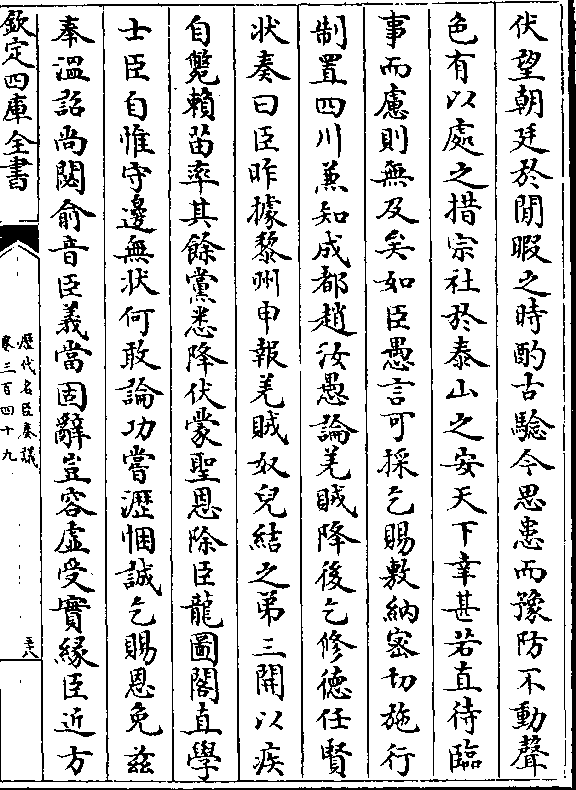 伏望朝廷於閒暇之時酌古驗今思患而豫防不動聲
色有以處之措宗社於泰山之安天下幸甚若直待臨
事而慮則無及矣如臣愚言可採乞賜敷納宻切施行
制置四川兼知成都趙汝愚論羌賊降後乞修德任賢
狀奏曰臣昨據黎州申報羌賊奴兒結之弟三開以疾
自斃賴苗率其餘黨悉降伏蒙聖恩除臣龍圖閣直學
士臣自惟守邊無狀何敢論功嘗瀝悃誠乞賜恩免兹
奉溫詔尚閟俞音臣義當固辭豈容虛受實緣臣近方
欽定四庫全書
歴代名臣奏議
卷三百四十九